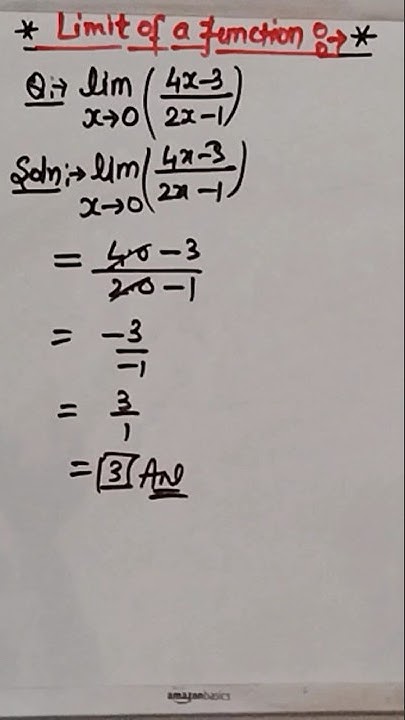 * Limit of a function :→ *
Q:→ lim x→0 (4x-3 / 2x-1)
Soln:→ lim x→0 (4x-3 / 2x-1)
= 4·0 - 3 / 2·0 - 1
= -3 / -1
= 3 / 1
= 3 Ans
amazonbasics